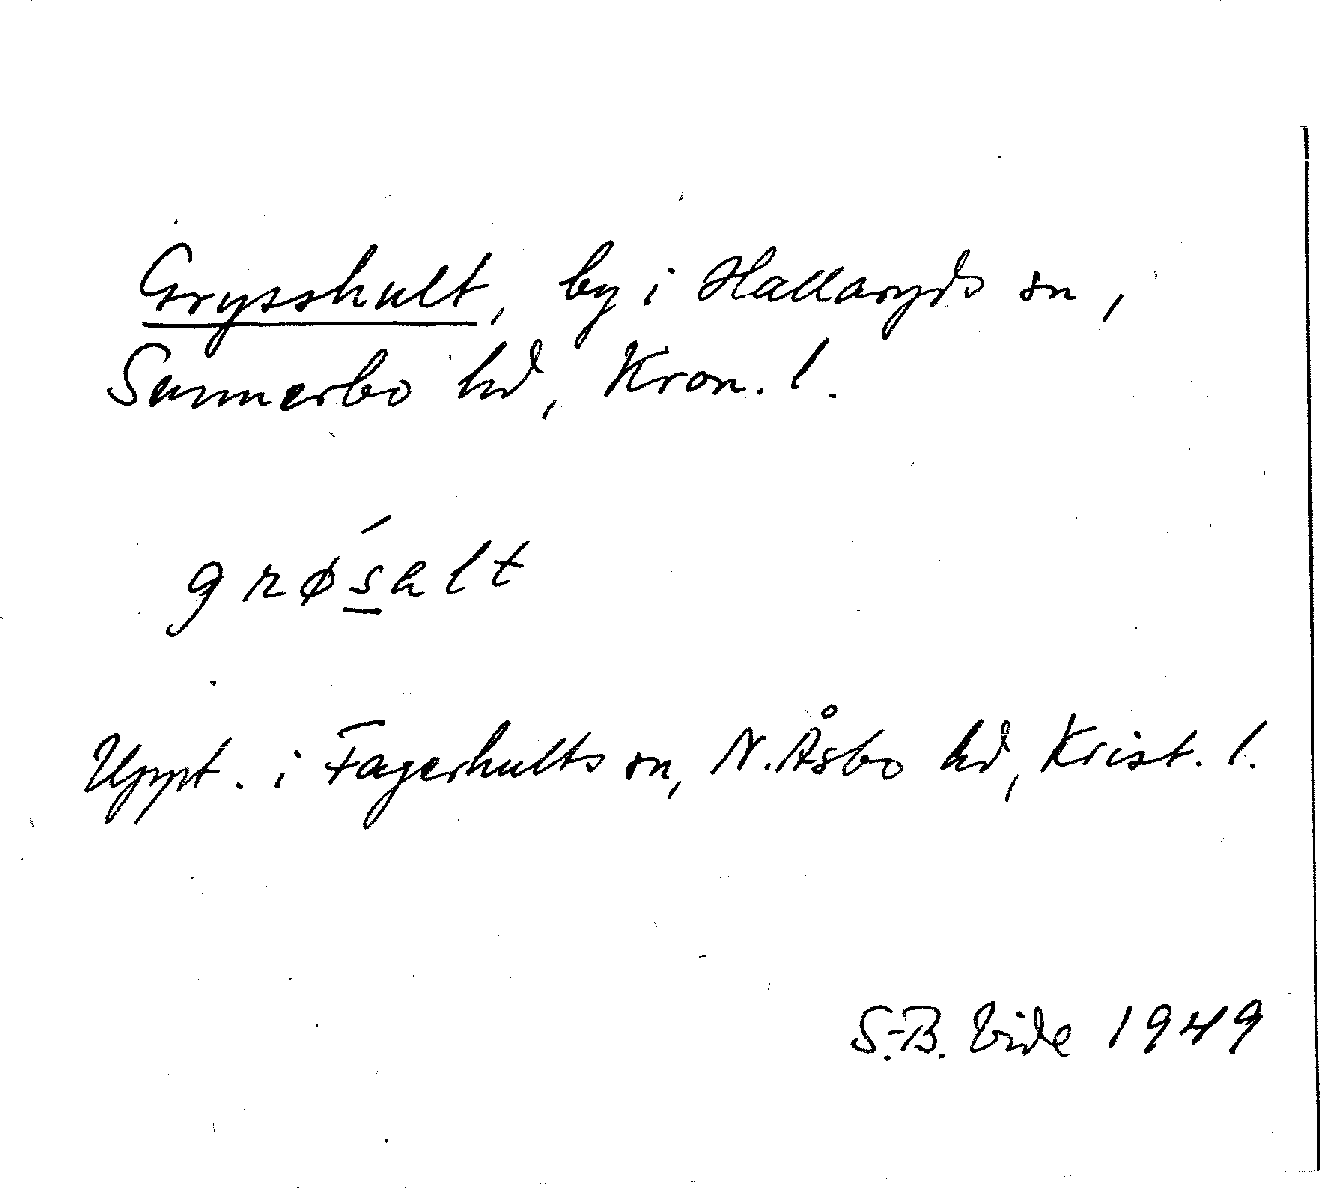 Grysshult, by i Hallaryds sn,
Sunnerbo hd, Kron. l.
grø´salt
Uppt. i Fagerhults sn, N. Åsbo hd, Krist. l.
S.-B. Vide 1949